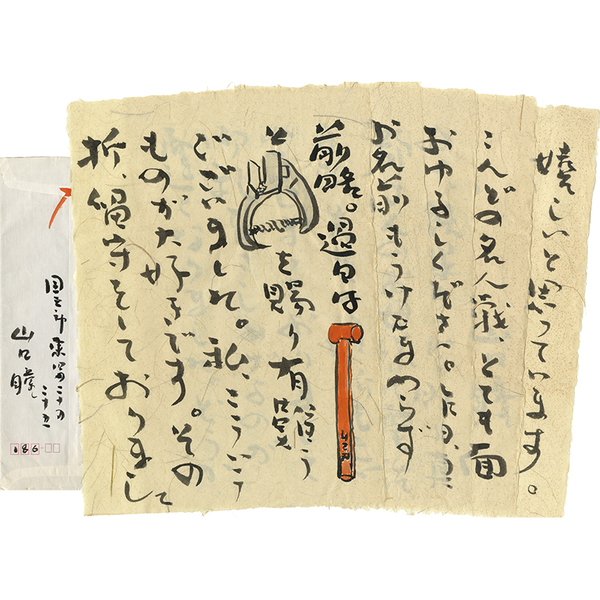 前略。過日は
と
を賜り有難う
ございました。私、こういう
ものが大好きです。その
折、留守をしておりまして
お名前もうけたまわらず
おゆるしください。
こんどの名人戦、とても面
嬉しいと思っています。
国立市東
山口瞳
186